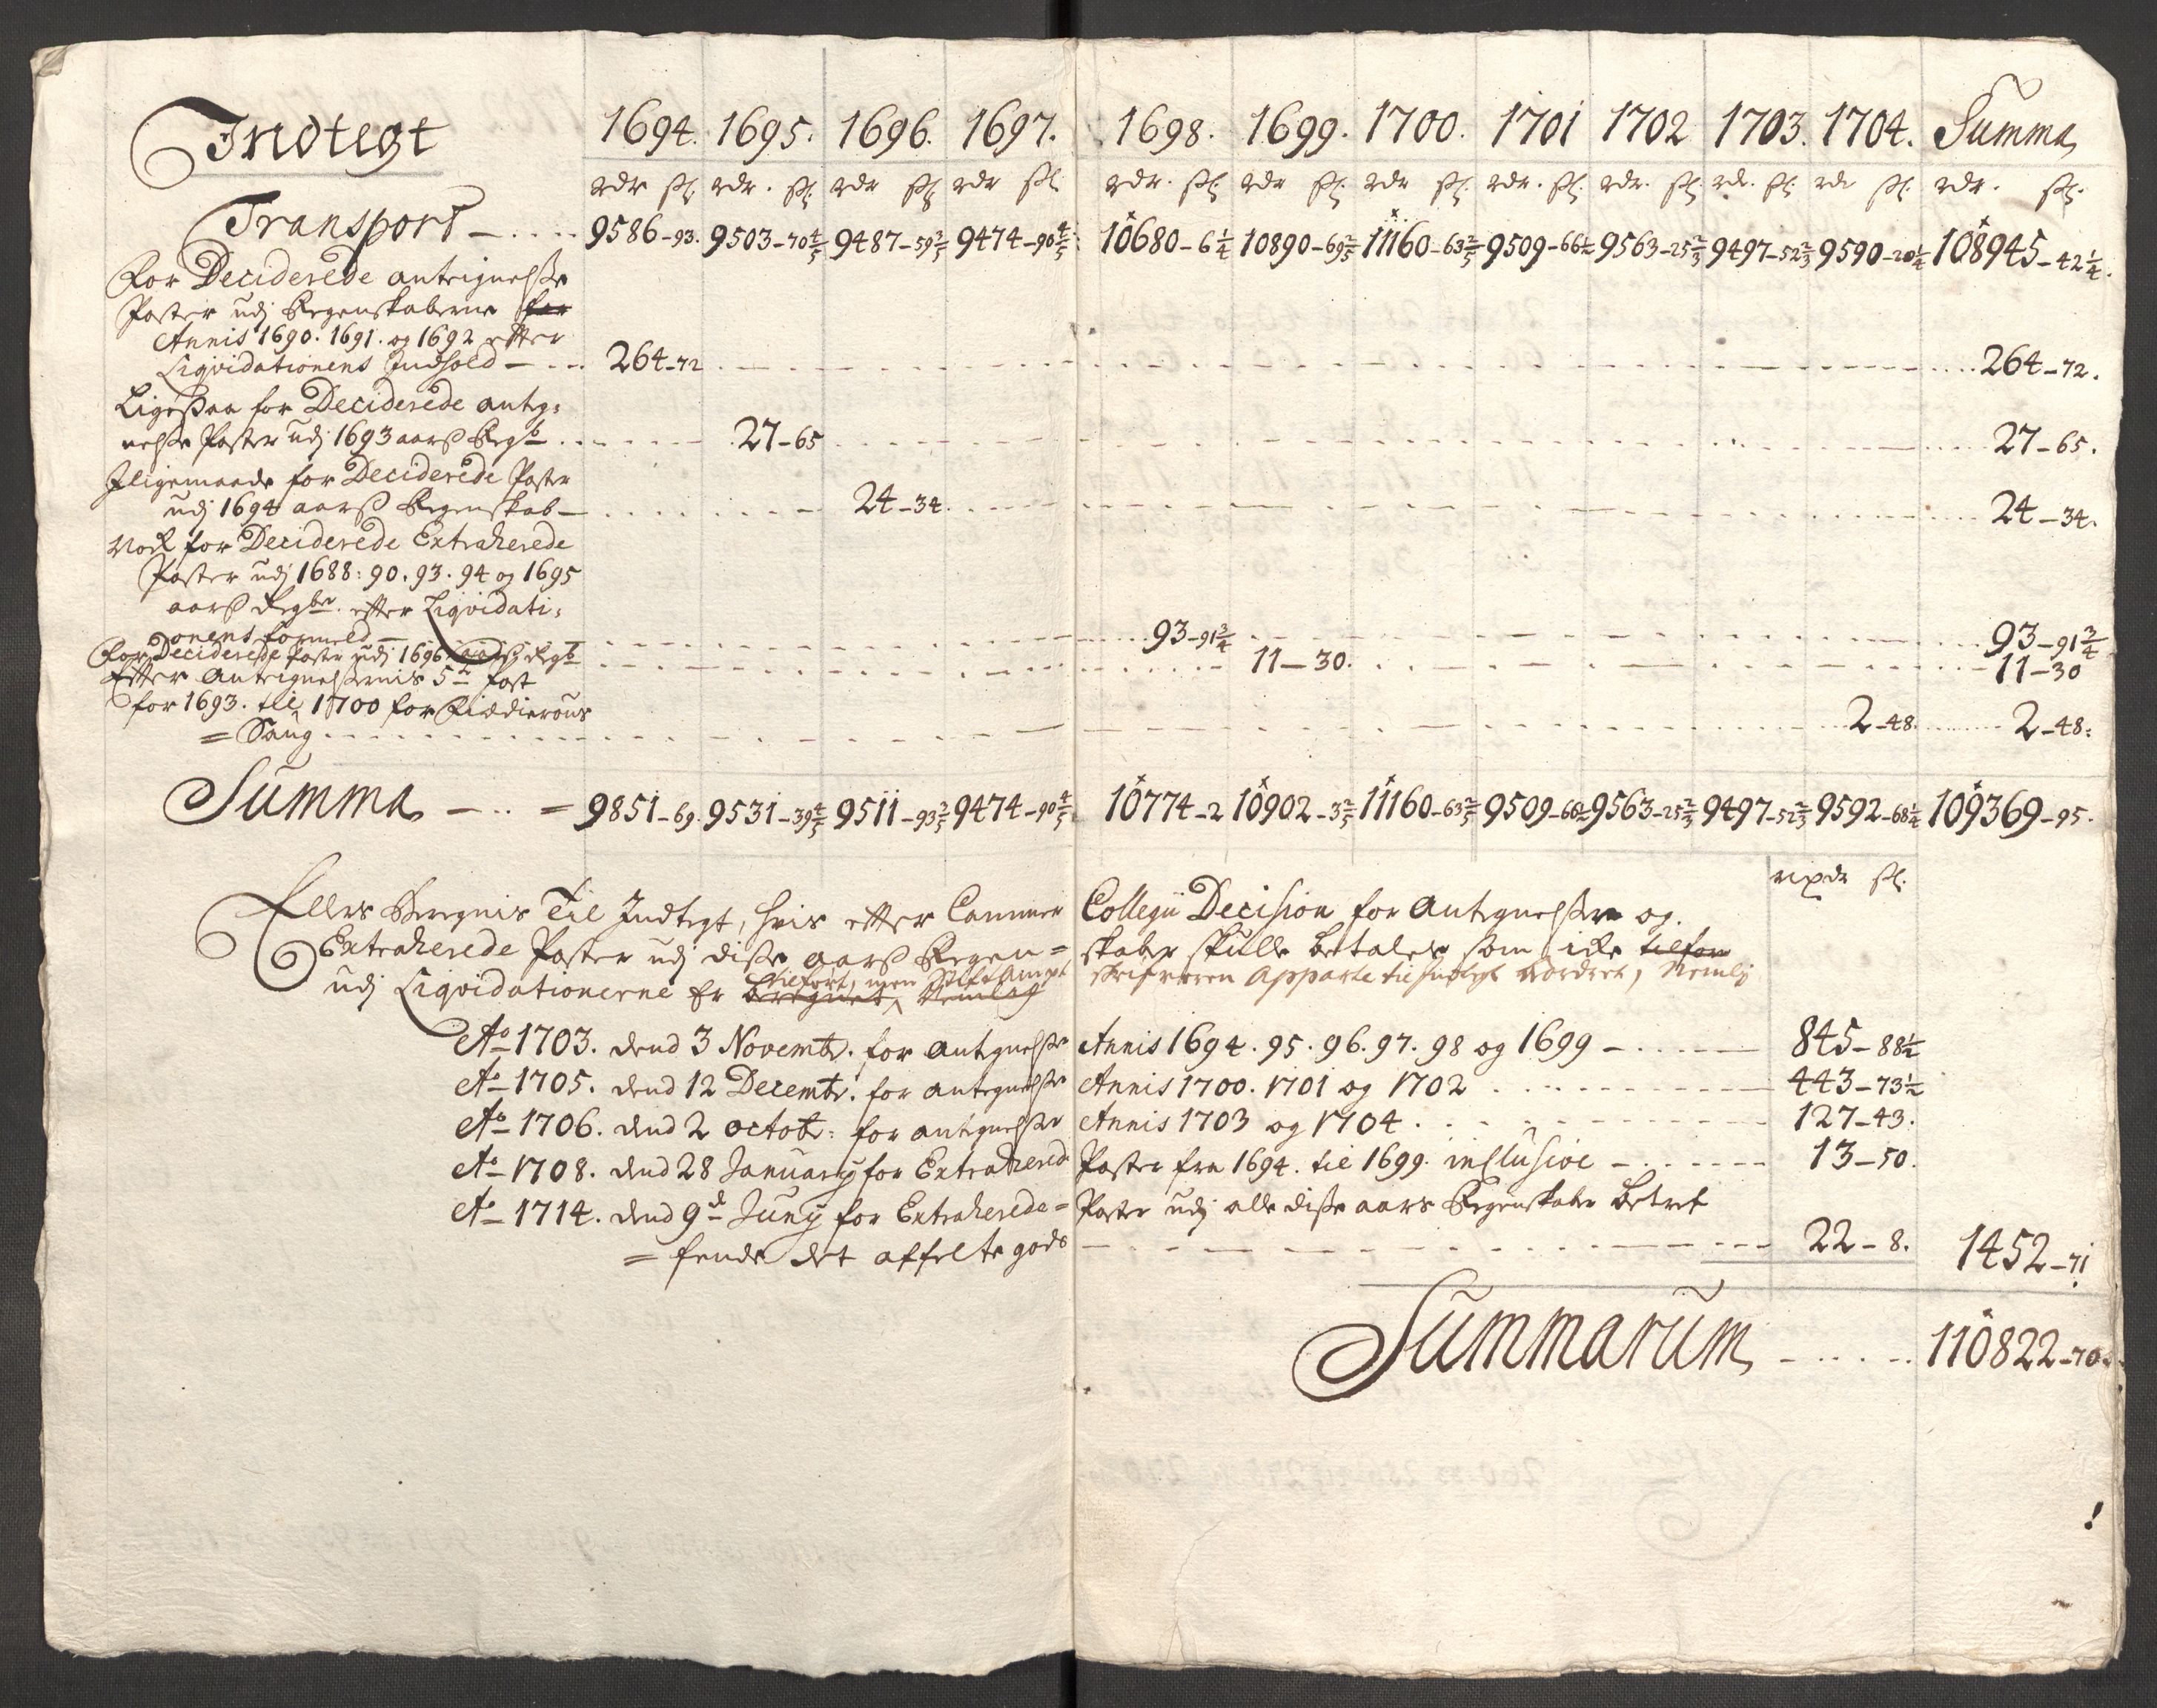 Indtegt 1694. 1695. 1696. 1697. 1698. 1699. 1700. 1701 1702 1703. 1704. Summa
rdr sh. rdr. sh. rdr sh. rdr sh. rdr. sh. rdr sh. rdr sh. rdr. sh. rdr. sh. rdr. sh. rdr sh. rdr. sh.
Transport — .... 9586-93. 9503-70 4/5 9487-59 2/5 9474-90 4/5 10680-6 1/4 10890-69 2/5 11160-63 2/5 9509-66 1/2 9563-25 2/3 9497-52 2/3 9590-20 1/4 108945-42 1/4.
For Deciderede anteignelsse
Poster udj Regenskaberne for
Annis 1690. 1691. og 1692 efter
Liqvidationens Indhold — ... 264-72 264-72.
Ligesaa for Deciderede anteg-
nelsse Poster udj 1693 aars Regsb 27-65 27-65.
Iligemaade for Deciderede Poster
udj 1694 aars Regenskab — 24-34. 24-34.
Nock for Deciderede Extraherede
Poster udj 1688: 90. 93. 94 og 1695
aars Regber. efter Liqvidati-
onens formeld — 93-91 3/4 93-91 3/4
For Deciderede Poster udj 1696 aars Regsb 11-30. 11-30
Efter Anteignelssernis 5te Post
for 1693. til 1700 for
= Saug 2-48. 2-48:
Summa — .. = 9851-69. 9531-39 4/5 9511-93 2/5 9474-90 4/5 10774-2 10902-3 2/5 11160-63 2/5 9509-66 1/2 9563-25 2/3 9497-52 2/3 9592-68 1/4 109369-95.
rixdr sh.
Ellers Beregnis Til Indtegt, hvis efter Cammer Collegii Decision for Antegnelsser og
Extraherede Poster udj disse aars Regen= skaber skulle betales som icke tilforn
tilført, men Stift Ampt
udj Liqvidationerne Er beregnet, Nemlig skrifveren Apparte til Indtegt vordret, Nemlig
Ao 1703. dend 3 Novembr. for Antegnelsse Annis 1694. 95. 96. 97. 98 og 1699 — 845-88 1/2
Ao 1705. dend 12 Decembr. for antegnelsse Annis 1700. 1701 og 1702 443-73 1/2
Ao 1706. dend 2 octobr: for antegnelsse Annis 1703 og 1704. 127-43.
Ao 1708. dend 28 January for Extrahered Poster fra 1694. til 1699. inclusive — 13-50.
Ao 1714. dend 9d Juny for Extraherede= Poster udj alle disse aars Regenskaber betref
= fende det affelte gods 22-8. 1452-71
Summarum — 110822-70.